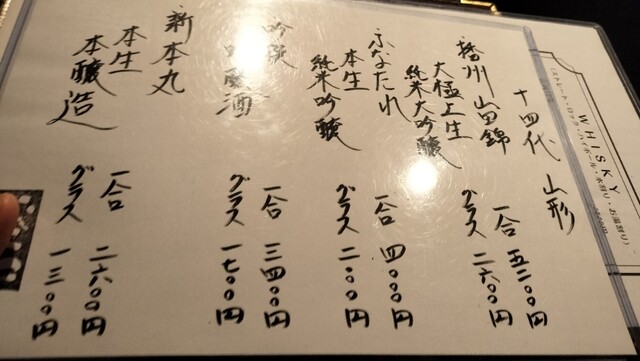 WHISKY
十四代 山形
播州山田錦
大極上生
純米大吟醸
一合 五二〇〇円
グラス 二六〇〇円
ふなたれ
本生
純米吟醸
一合 四〇〇〇円
グラス 二〇〇〇円
吟撰
吟醸酒
一合 三四〇〇円
グラス 一七〇〇円
新本丸
本生
本醸造
一合 二六〇〇円
グラス 一三〇〇円